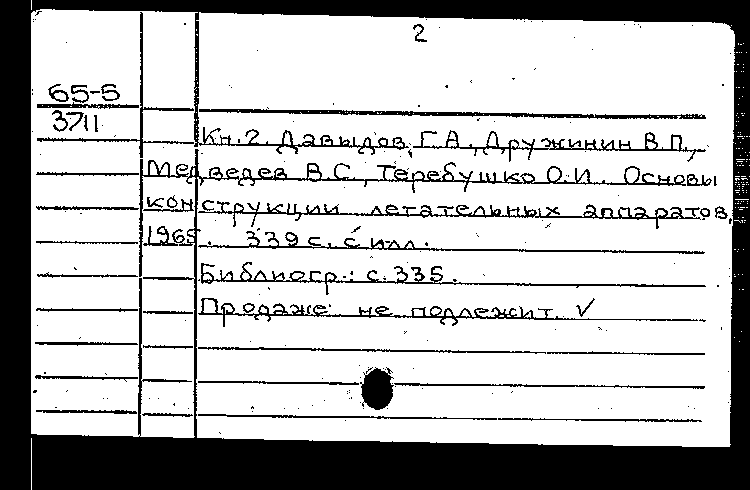 2
65-5
3711
Кн.2. Давыдов, Г.А., Дружинин В.П.,
Медведев В.С., Теребушко О.И. Основы
конструкции летательных аппаратов,
1965. 339 с. с илл.
Библиогр.: с. 335.
Продаже не подлежит. ✓